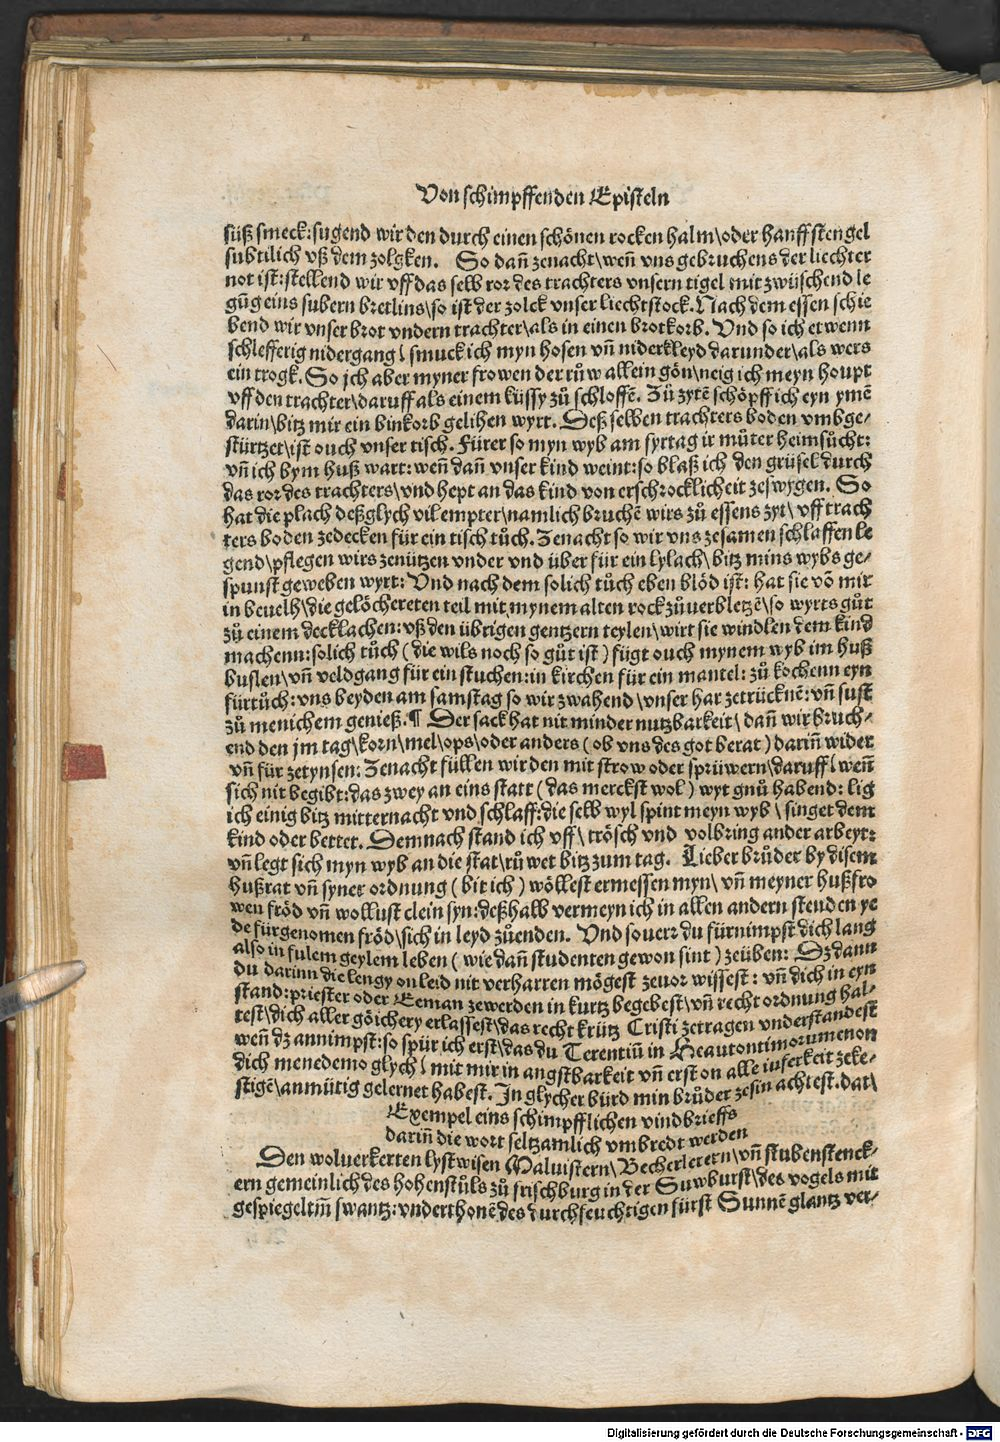 Von schimpffenden Episteln
süß smeck: sugend wir den durch einen schönen rocken halm\oder hanffstengel
subtilich vß dem zolgken. So dañ zenacht\weñ vns gebruchens der liechter
not ist: stellend wir vff das selb ror des trachters vnsern tigel mit zwüschend le
gũg eins subern bretlins\so ist der zolck vnser liechtstock. Nach dem essen schie
bend wir vnser brot vndern trachter\als in einen brotkorb. Vnd so ich etwenn
schlefferig nidergang\smuck ich myn hosen vñ niderkleyd darunder\als wers
ein trogk. So jch aber myner frowen der růw allein gön\neig ich meyn houpt
vff den trachter\daruff als einem küssy zů schloffē. Zů zytē schöpff ich eyn ymē
darin\bitz mir ein binkorb gelihen wyrt. Deß selben trachters boden vmbge-
stürtzet\ist ouch vnser tisch. Fürer so myn wyb am fyrtag ir můter heimsůcht:
vñ ich bym huß wart: weñ dañ vnser kind weint: so blaß ich den grüsel durch
das ror des trachters\vnd hept an das kind von erschrocklicheit zeswygen. So
hat die plach deßglych vil empter\namlich bruchē wirs zů essens zyt\vff trach
ters boden zedecken für ein tisch tůch. Zenacht so wir vns zesamen schlaffen le
gend\pflegen wirs zenützen vnder vnd über für ein lylach\bitz mins wybs ge-
spunst geweben wyrt: Vnd nach dem solich tůch eben blöd ist: hat sie võ mir
in beuelh\die gelöchereten teil mit mynem alten rock zůuerbletzē\so wyrts gůt
zů einem decklachen: vß den übrigen gentzern teylen\wirt sie windlen dem kind
machenn: solich tůch (die wils noch so gůt ist) fügt ouch mynem wyb im huß
buslen\vñ veldgang für ein stuchen: in kirchen für ein mantel: zů kochenn eyn
fürtůch: vns beyden am samstag so wir zwahend\vnser har zetrücknē: vñ sust
zů menichem genieß. ¶ Der sack hat nit minder nutzbarkeit\dañ wir bruch-
end den jm tag\korn\mel\ops\oder anders (ob vns des got berat) dariñ wider
vñ für zetynsen: Zenacht füllen wir den mit strow oder sprüwern\daruff\weñ
sich nit begibt: das zwey an eins statt (das merckst wol) wyt gnů habend: lig
ich einig bitz mitternacht vnd schlaff: die selb wyl spint meyn wyb\singet dem
kind oder bettet. Demnach stand ich vff\trösch vnd volbring ander arbeyt:
vñ legt sich myn wyb an die stat\růwet bitz zum tag. Lieber brůder by disem
hußrat vñ syner ordnung (bit ich) wöllest ermessen myn\vñ meyner hußfro
wen fröd vñ wollust clein syn: deßhalb vermeyn ich in allen andern stenden ye
de fürgenomen fröd\sich in leyd zůenden. Vnd so uerr du fürnimpst dich lang
also in fulem geylem leben (wie dañ studenten gewon sint) zeüben: Dz dann
du darinn die lengy on leid nit verharren mögest zeuor wissest: vñ dich in eyn
stand: priester oder Eeman zewerden in kurtz begebest\vñ recht ordnung hal-
test\dich aller göichery erlassest\das recht krütz Cristi zetragen vnderstandest
weñ dz annimpst: so spür ich erst\das du Terentiũ in Heautontimorumenon
dich menedemo glych\mit mir in angstbarkeit vñ erst on alle iuferkeit zeke-
stigē\anmütig gelernet habest. In glycher bürd min brůder zesin achtest. dat\
Exempel eins schimpfflichen vindbrieffs
dariñ die wort seltzamlich vmbredt werden
Den woluerkerten lystwisen Maluistern\Becherlerern\vñ stubenstenck-
ern gemeinlich des hohenstůls zů frischburg in der Suwburst\des vogels mit
gespiegeltm̃ swantz: vnderthonē des durchfeuchtigen fürst Sunnē glantz ver-
Digitalisierung gefördert durch die Deutsche Forschungsgemeinschaft - DFG